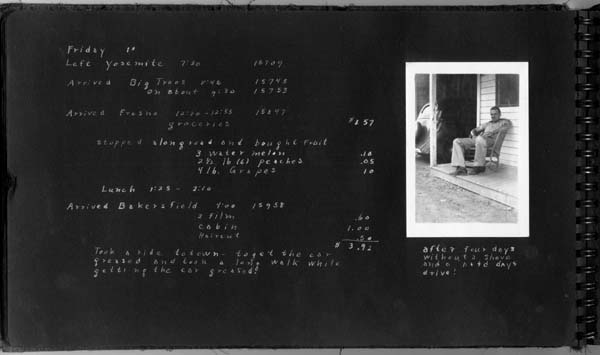 Friday
Left Yosemite 7:30 15709
Arrived Big Trees 15745
on about 9:30 15753
Arrived Fresno 15847
groceries $ .57
stopped along road and bought fruit
3 water melon .10
2½ lb peaches .05
4 lb. Grapes 10
Lunch 1:25 - 2:10
Arrived Bakersfield 15958
2 film .60
cabin 1.00
Haircut .50
$ 3.92
Took a ride to town - to get the car
greased and took a long walk while
getting the car greased!
after four days
without a shave
and a hard days
drive!